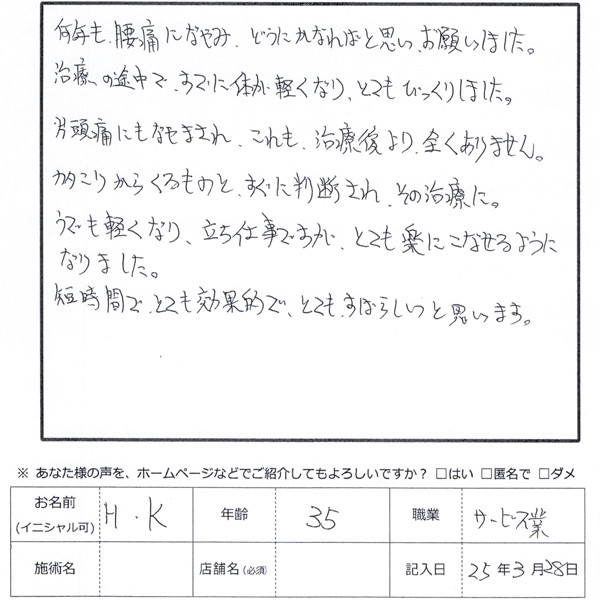 何年も、腰痛になやみ、どうにかなればと思い、お願いしました。
治療の途中で、すでに体が軽くなり、とてもびっくりしました。
片頭痛にもなやまされ、これも、治療後より、全くありません。
カタこりからくるものと、すぐに判断され、その治療に。
うでも軽くなり、立ち仕事ですが、とても楽にこなせるように
なりました。
短時間で、とても効果的で、とても、すばらしいと思います。
※ あなた様の声を、ホームページなどでご紹介してもよろしいですか？ □はい □匿名で □ダメ
お名前 (イニシャル可) H.K 年齢 35 職業 サービス業
施術名 店舗名(必須) 記入日 25年3月28日